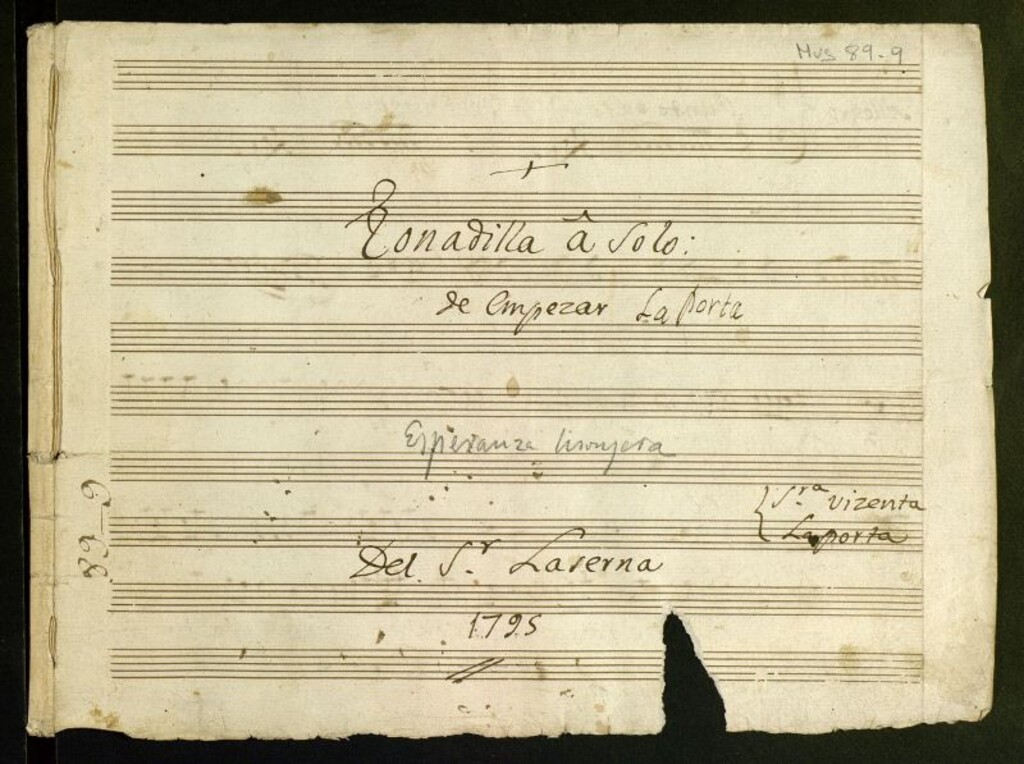 Mus 89-9
Tonadilla â Solo:
de Empezar La Porta
Esperanza lisonjera
S.ra Vizenta
Laporta
Del S.r Laserna
1795
89-9